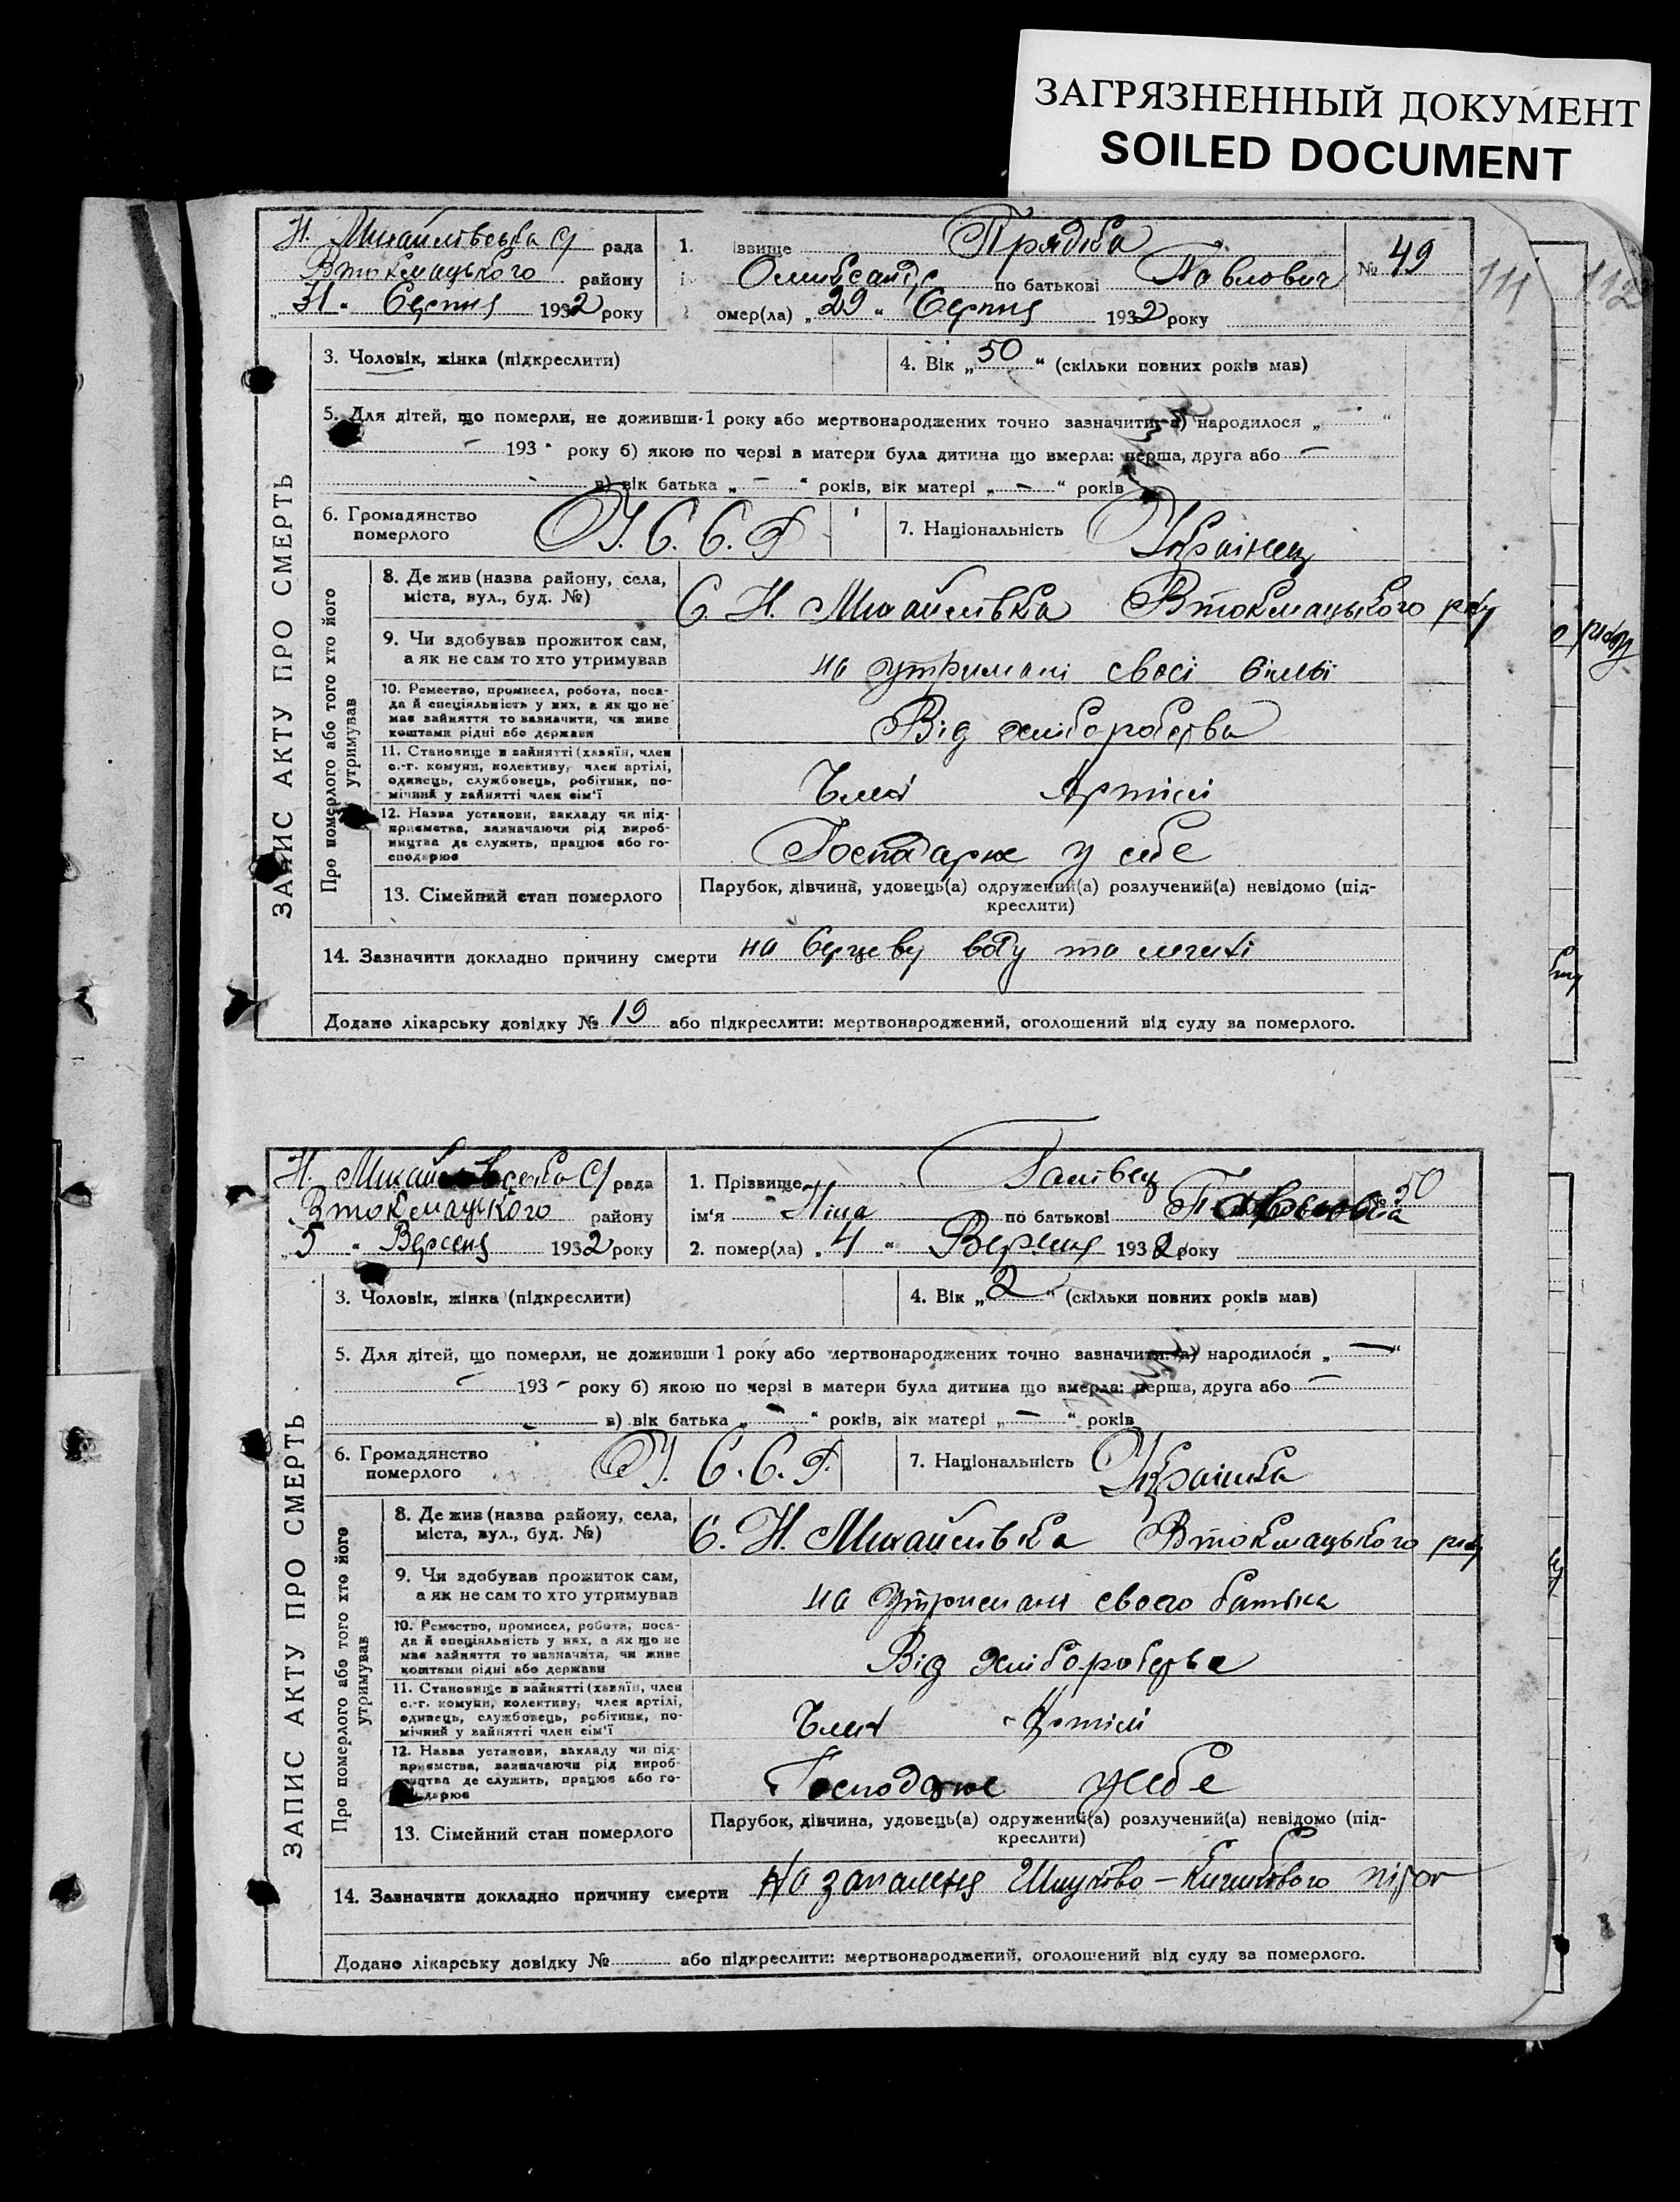 ЗАГРЯЗНЕННЫЙ ДОКУМЕНТ
SOILED DOCUMENT
Н. Михайлівська С/ рада
Втокмацького району
„31“ Серпня 1932 року
1. ізвище Прядка
Олександр по батькові Павлович
№ 49
омер(ла) „29“ Серпня 1932 року
111
112
ЗАПИС АКТУ ПРО СМЕРТЬ
3. Чоловік, жінка (підкреслити)
4. Вік „50“ (скільки повних років мав)
5. Для дітей, що померли, не доживши 1 року або мертвонароджених точно зазначити: а) народилося „ — “
— 193 року б) якою по черзі в матери була дитина що вмерла: перша, друга або —
в) вік батька „ — “ років, вік матері „ — “ років
6. Громадянство
померлого
У.С.С.Р.
7. Національність Українец
Про померлого або того хто його
утримував
8. Де жив (назва району, села,
міста, вул., буд. №)
С. Н. Михайлівка Втокмацького р-ну
9. Чи здобував прожиток сам,
а як не сам то хто утримував
на утримані своєї сімьї
10. Ремество, промисел, робота, поса-
да й спеціяльність у них, а як що не
має зайняття то зазначити, чи живе
коштами рідні або держави
Від хліборобства
11. Становище в зайнятті (хазяїн, член
с.-г. комуни, колективу, член артілі,
одинець, службовець, робітник, по-
мічний у зайнятті член сім'ї
Член Артілі
12. Назва установи, закладу чи під-
приємства, зазначаючи рід вироб-
ництва де служить, працює або го-
сподарює
Господарює у себе
13. Сімейний стан померлого
Парубок, дівчина, удовець(а) одружений(а) розлучений(а) невідомо (під-
креслити)
14. Зазначити докладно причину смерти на Серцеву ваду та легені
Додано лікарську довідку № 19 або підкреслити: мертвонароджений, оголошений від суду за померлого.
Н. Михайлівська С/ рада
Втокмацького району
„5“ Вересня 1932 року
1. Прізвище Галівец
№ 50
ім'я Ніна по батькові Павловна
2. помер(ла) „4“ Вересня 1932 року
ЗАПИС АКТУ ПРО СМЕРТЬ
3. Чоловік, жінка (підкреслити)
4. Вік „2“ (скільки повних років мав)
5. Для дітей, що померли, не доживши 1 року або мертвонароджених точно зазначити: а) народилося „ — “
— 193 – року б) якою по черзі в матери була дитина що вмерла: перша, друга або —
в) вік батька „ — “ років, вік матері „ — “ років
6. Громадянство
померлого
У.С.С.Р.
7. Національність Українка
Про померлого або того хто його
утримував
8. Де жив (назва району, села,
міста, вул., буд. №)
С. Н. Михайлівка Втокмацького р-ну
9. Чи здобував прожиток сам,
а як не сам то хто утримував
на утримані своего батька
10. Ремество, промисел, робота, поса-
да й спеціяльність у них, а як що не
має зайняття то зазначити, чи живе
коштами рідні або держави
Від хліборобства
11. Становище в зайнятті (хазяїн, член
с.-г. комуни, колективу, член артілі,
одинець, службовець, робітник, по-
мічний у зайнятті член сім'ї
Член Артілі
12. Назва установи, закладу чи під-
приємства, зазначаючи рід вироб-
ництва де служить, працює або го-
сподарює
Господарює у себе
13. Сімейний стан померлого
Парубок, дівчина, удовець(а) одружений(а) розлучений(а) невідомо (під-
креслити)
14. Зазначити докладно причину смерти На запалення Шлунково-Кишкового
Додано лікарську довідку № або підкреслити: мертвонароджений, оголошений від суду за померлого.